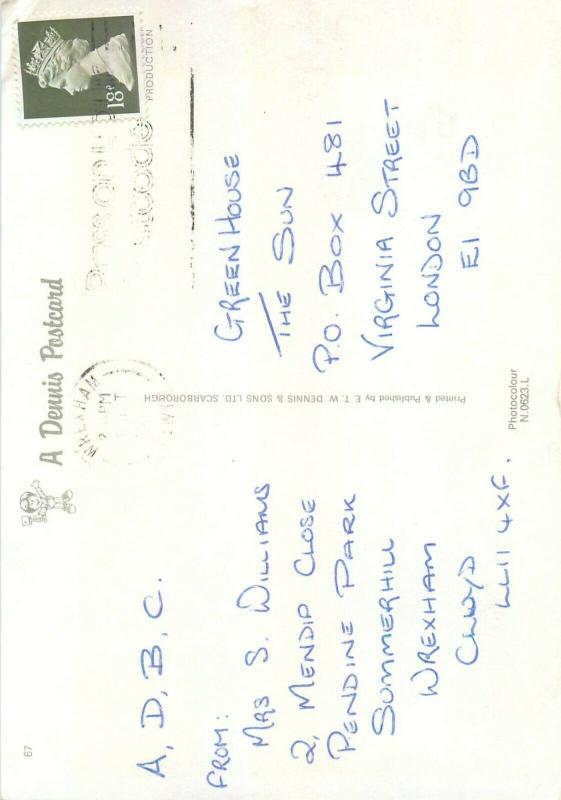 67
A Dennis Postcard
A, D, B, C.
FROM:
MRS S. WILLIAMS
2, MENDIP CLOSE
PENDINE PARK
SUMMERHILL
WREXHAM
CLWYD
LL11 4XF.
Printed & Published by E. T. W. DENNIS & SONS LTD. SCARBOROUGH
WREXHAM
PM
18P
PRODUCTION
GREEN HOUSE
THE SUN
P.O. BOX 481
VIRGINIA STREET
LONDON
E1 9BD
Photocolour
N.0623.L